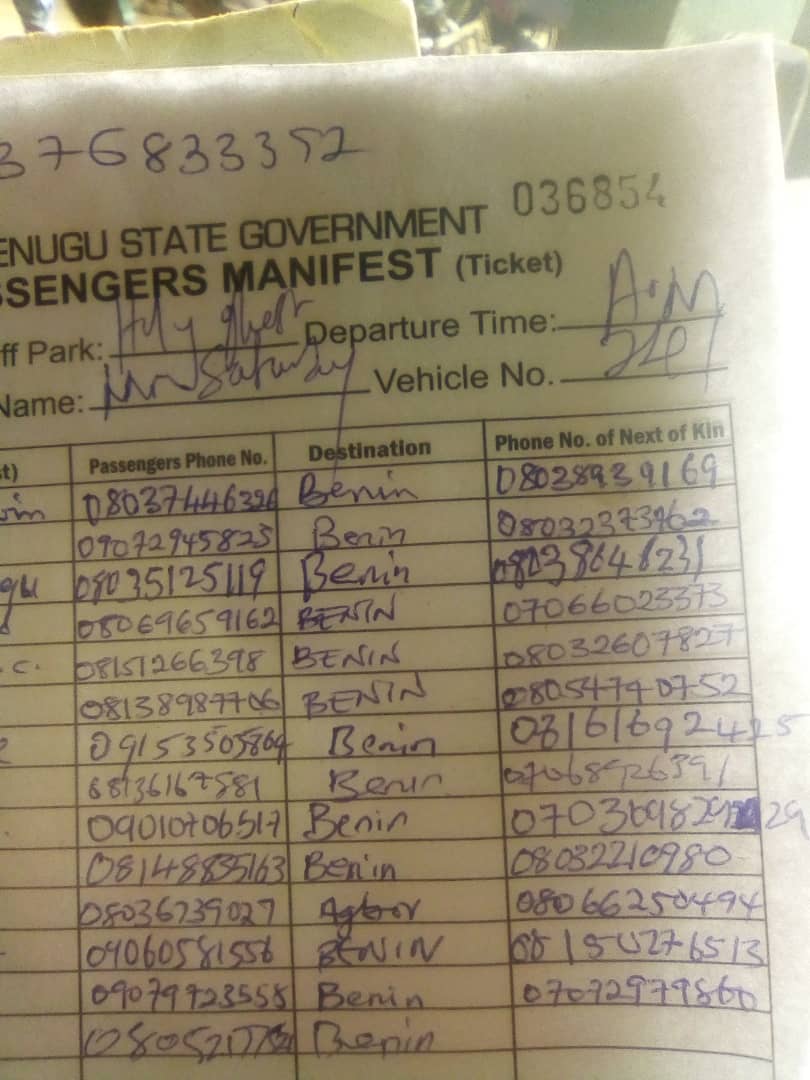 376833352
036854
ENUGU STATE GOVERNMENT
SSENGERS MANIFEST (Ticket)
ff Park: Holy ghost Departure Time: A.M
Name: Mr Saturday Vehicle No.
t) Passengers Phone No. Destination Phone No. of Next of Kin
Benin 08038939169
09072945823 Benin 08032373962
gu 08035125119 Benin
08069659162 BENIN 07066023373
.c. 08151266398 BENIN 08032607827
08138987706 BENIN 08054740752
09153505869 Benin
08136167581 Benin
09010706517 Benin
08148835163 Benin 08032210980
08036739027 Agbor 08066250494
09060581556 BENIN
09079723558 Benin 07072979860
Benin